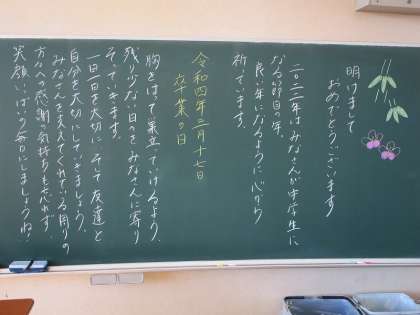 明けまして
おめでとうございます
二〇二二年はみなさんが中学生に
なる節目の年。
良い年になるように心から
祈っています。
令和四年三月十七日
卒業の日
胸をはって巣立っていけるよう、
残り少ない日々をみなさんに寄り
そっていきます。
一日一日を大切に、そして友達と
自分を大切にしていきましょう。
みなさんを支えてくれている周りの
方々への感謝の気持ちも忘れず
笑顔いっぱいの毎日にしましょうね!